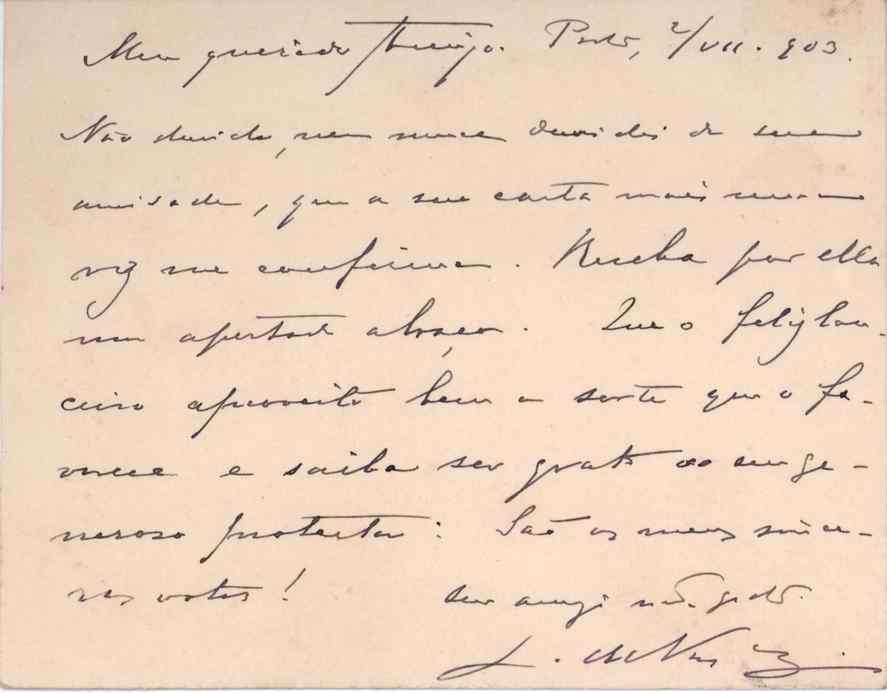 Meu querido Amigo. Porto, 2/VII. 903.
Não duvido, nem nunca duvidei da sua
amisade, que a sua carta mais uma
vez me confirma. Receba por ella
um apertado abraço. Que o feliz lou-
ceiro aproveite bem a sorte que o fa-
vorece e saiba ser grato ao seu ge-
neroso protector: São os meus since-
ros votos!
seu amigo mto. grato.
J. de Vas